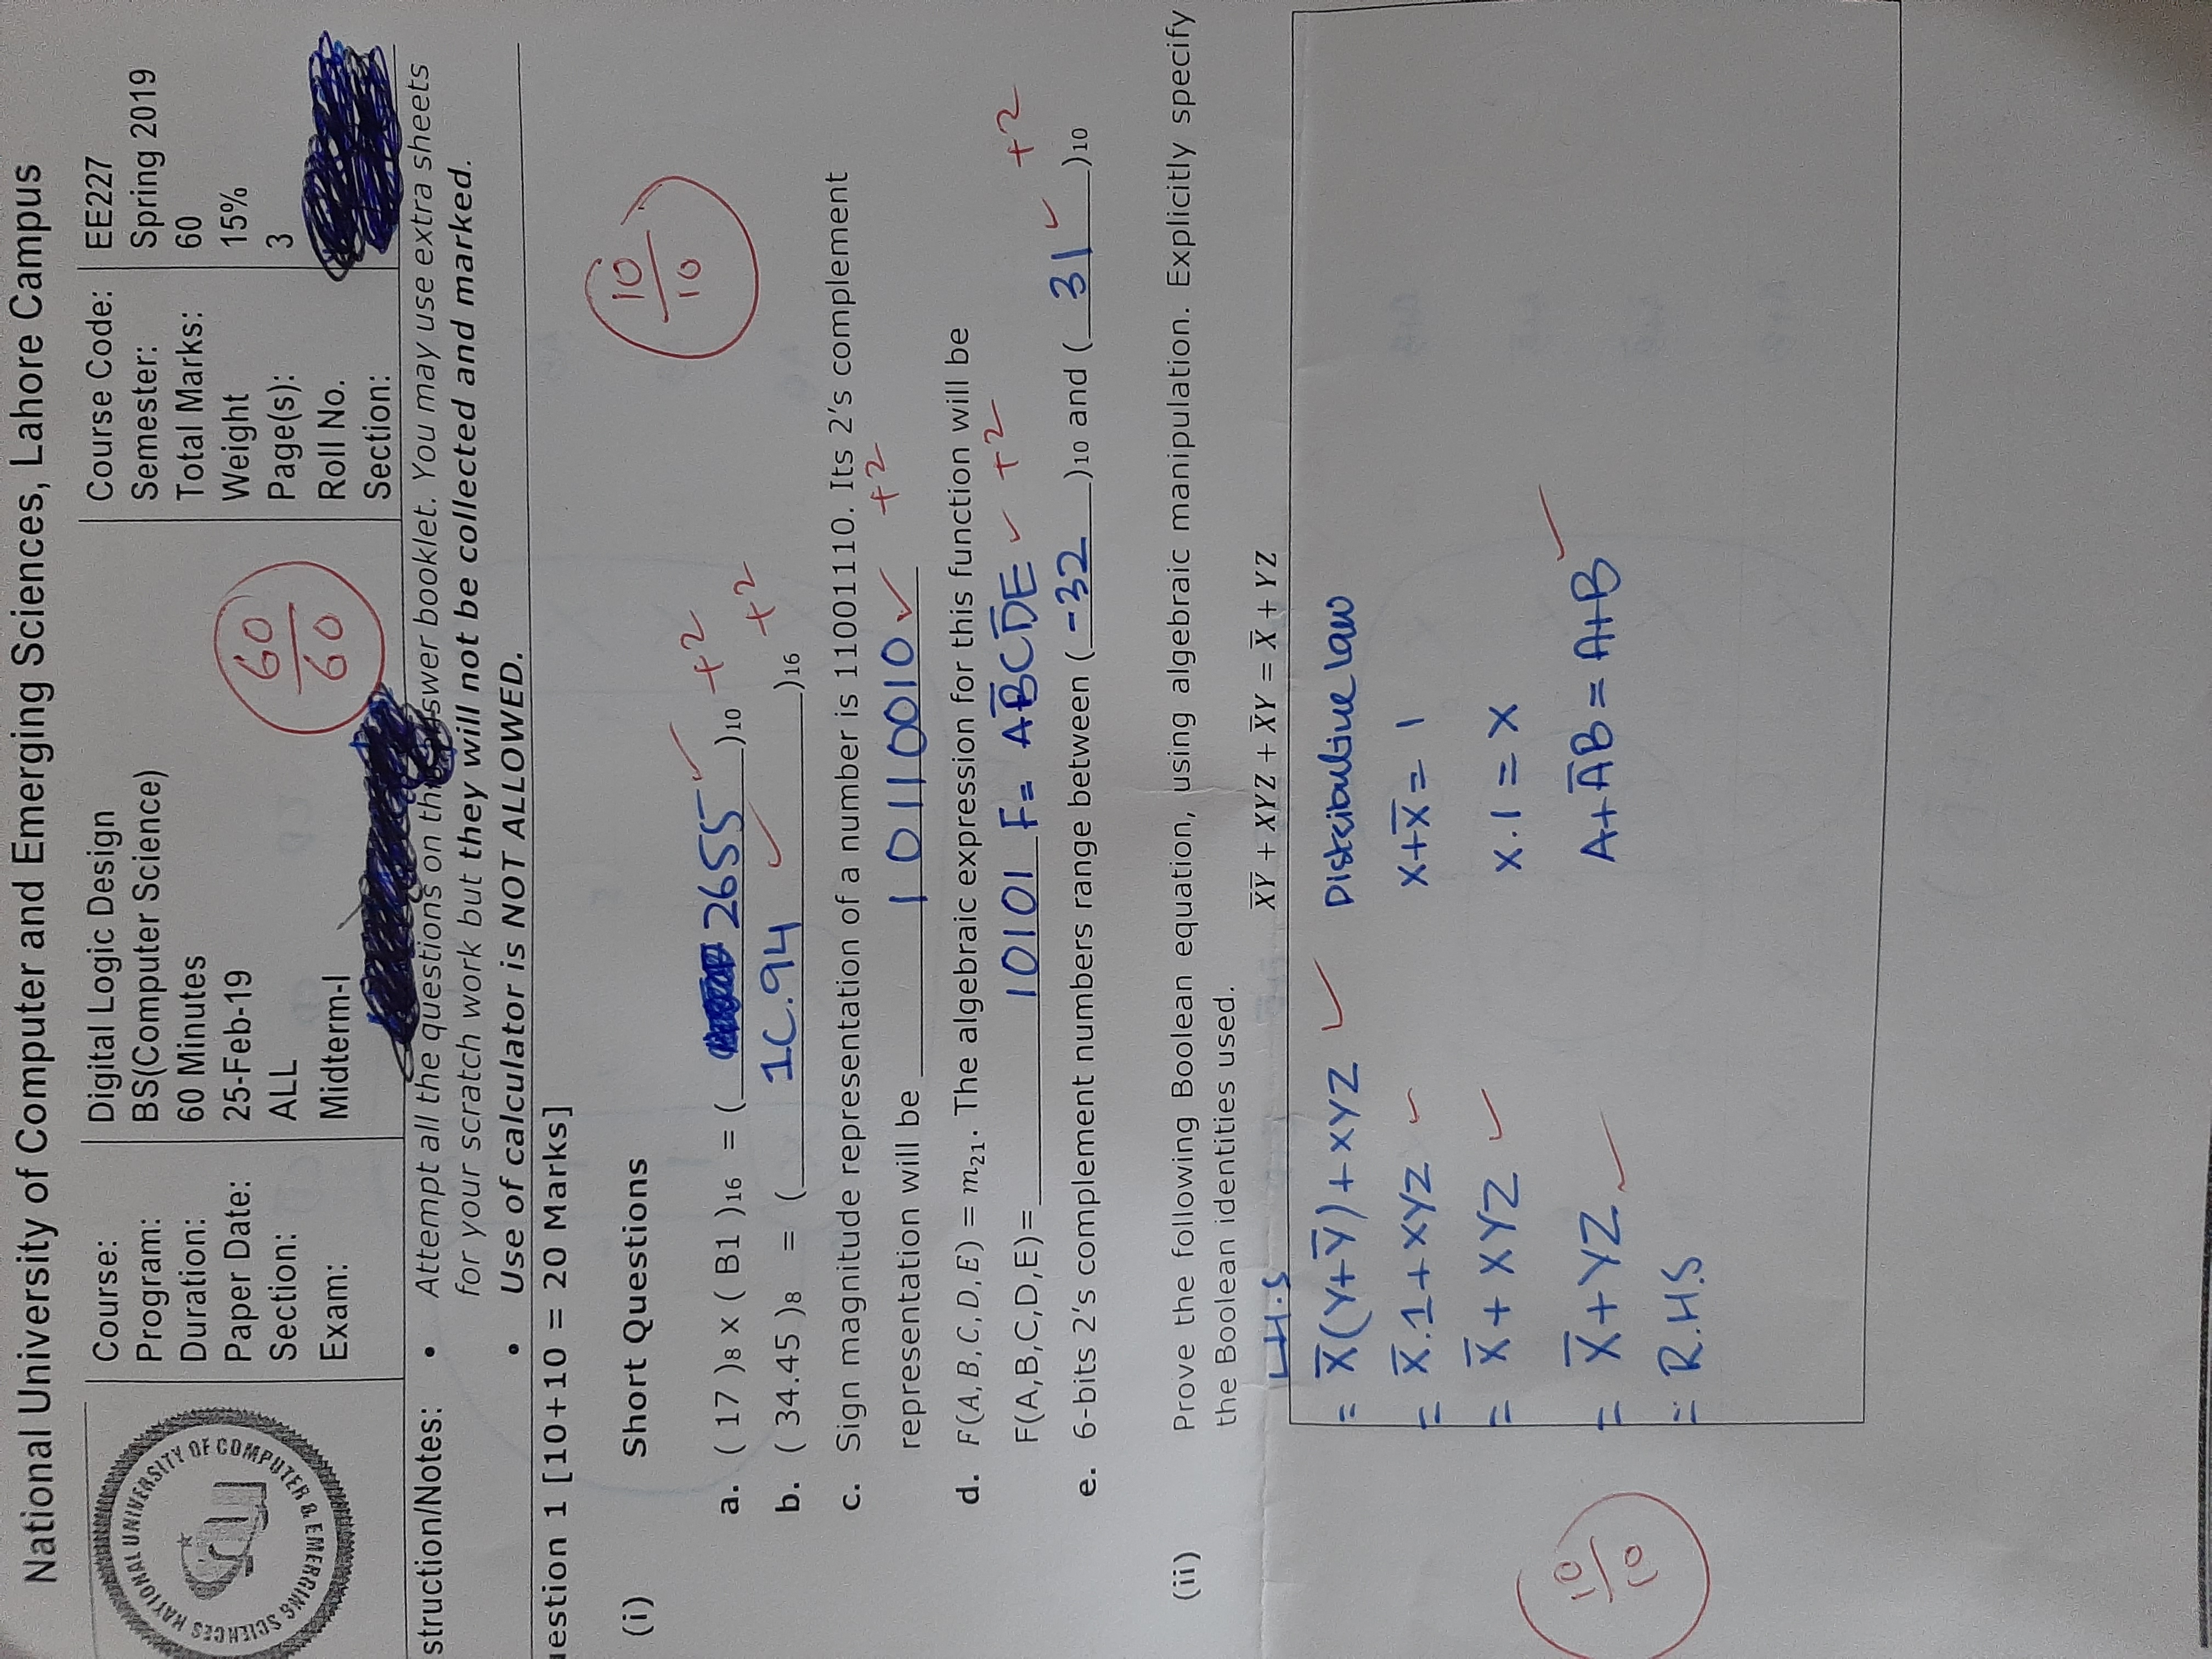 National University of Computer and Emerging Sciences, Lahore Campus
NATIONAL UNIVERSITY OF COMPUTER & EMERGING SCIENCES
Course: Digital Logic Design Course Code: EE227
Program: BS(Computer Science) Semester: Spring 2019
Duration: 60 Minutes Total Marks: 60
Paper Date: 25-Feb-19 Weight 15%
Section: ALL Page(s): 3
Exam: Midterm-I Roll No.
Section:
60
60
struction/Notes: • Attempt all the questions on this answer booklet. You may use extra sheets
for your scratch work but they will not be collected and marked.
• Use of calculator is NOT ALLOWED.
uestion 1 [10+10 = 20 Marks]
(i) Short Questions
10
10
a. ( 17 )8 x ( B1 )16 = ( 2655 )10 +2
b. ( 34.45 )8 = ( 1C.94 )16 +2
c. Sign magnitude representation of a number is 11001110. Its 2's complement
representation will be 10110010 +2
d. F(A,B,C,D,E) = m21. The algebraic expression for this function will be
F(A,B,C,D,E)= 10101 F= AB̅CD̅E +2
e. 6-bits 2's complement numbers range between ( -32 )10 and ( 31 )10 +2
(ii) Prove the following Boolean equation, using algebraic manipulation. Explicitly specify
the Boolean identities used.
X̅Y̅ + XYZ + X̅Y = X̅ + YZ
L.H.S
= X̅(Y+Y̅)+XYZ Distributive law
= X̅.1+XYZ X+X̅= 1
= X̅+ XYZ X.1 = X
= X̅+YZ A+A̅B = A+B
= R.H.S
10
10